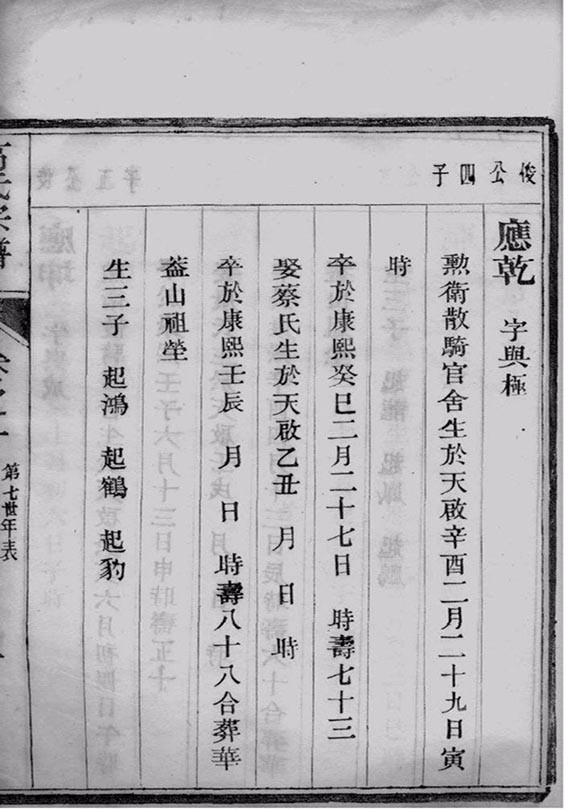 俊公四子
應乾 字與極
勲衛散騎官舍生於天啟辛酉二月二十九日寅
時
卒於康熙癸巳二月二十七日 時壽七十三
娶蔡氏生於天啟乙丑 月 日 時
卒於康熙壬辰 月 日 時壽八十八合葬華
葢山祖塋
生三子 起鴻 起鶴 起豹
第七世年表